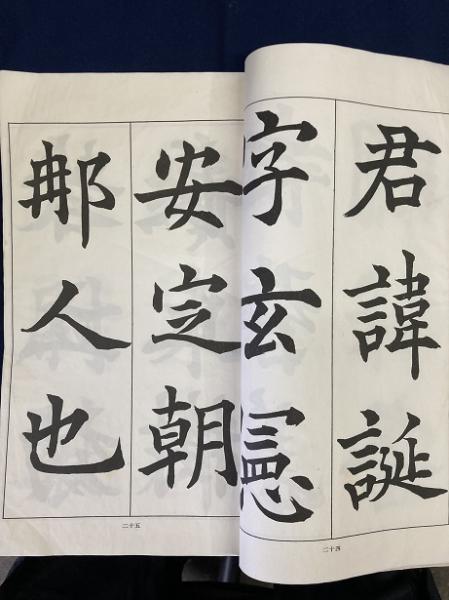 君諱誕
字玄憲
安定朝
那人也
二十四
二十五